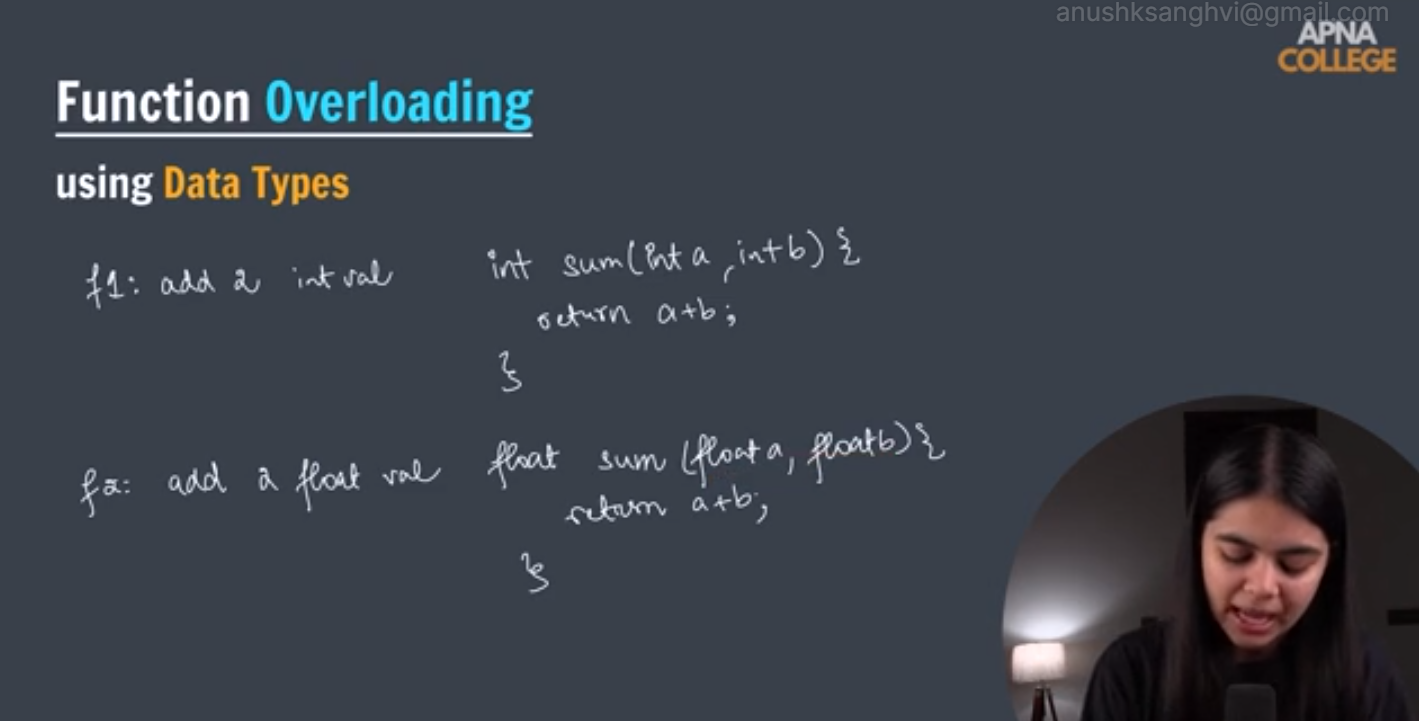 anushksanghvi@gmail.com
APNA
COLLEGE
Function Overloading
using Data Types
f1: add 2 int val
int sum(int a, int b) {
return a+b;
}
f2: add 2 float val
float sum (float a, float b) {
return a+b;
}